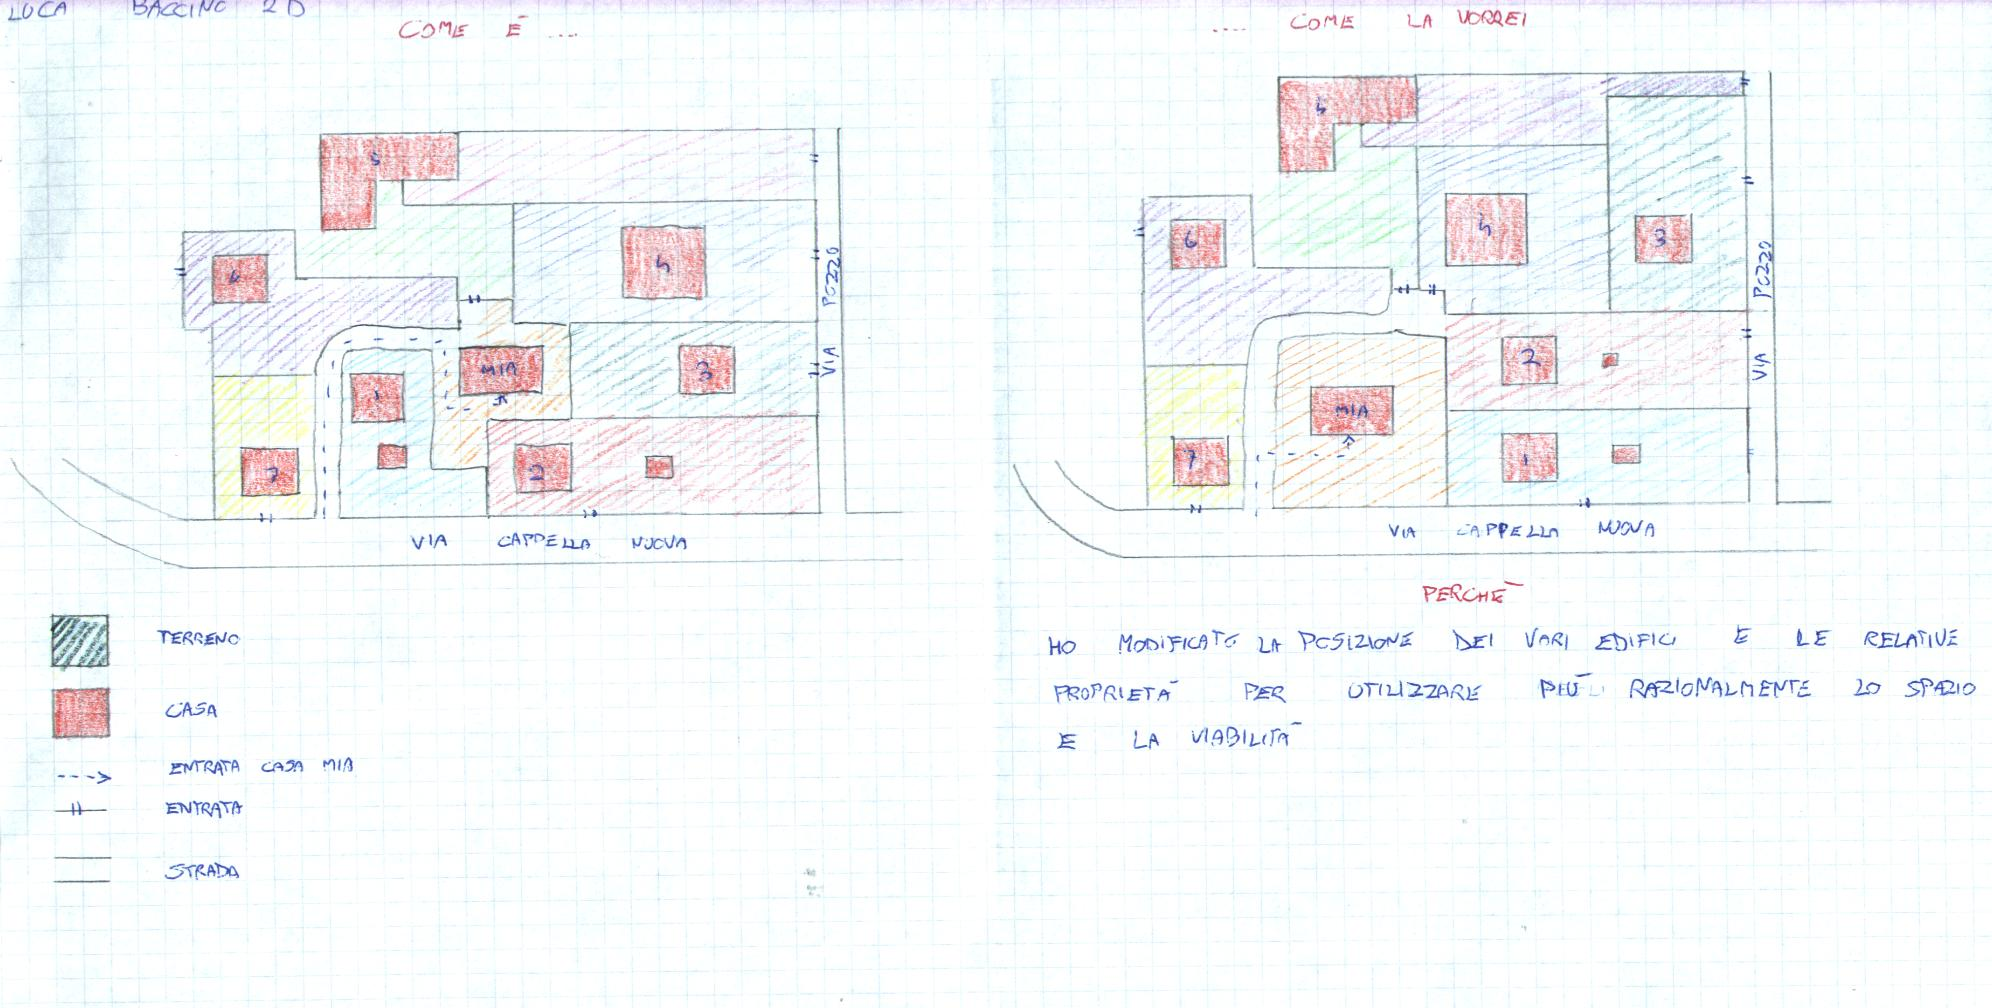 LUCA BACCINO 2D
COME È ....
5
6
4
MIA
1
3
7
2
VIA POZZO
VIA CAPPELLA NUOVA
TERRENO
CASA
ENTRATA CASA MIA
ENTRATA
STRADA
.... COME LA VORREI
6
3
2
MIA
7
1
VIA POZZO
VIA CAPPELLA NUOVA
PERCHÈ
HO MODIFICATO LA POSIZIONE DEI VARI EDIFICI E LE RELATIVE
PROPRIETÀ PER UTILIZZARE PIÙ RAZIONALMENTE LO SPAZIO
E LA VIABILITÀ